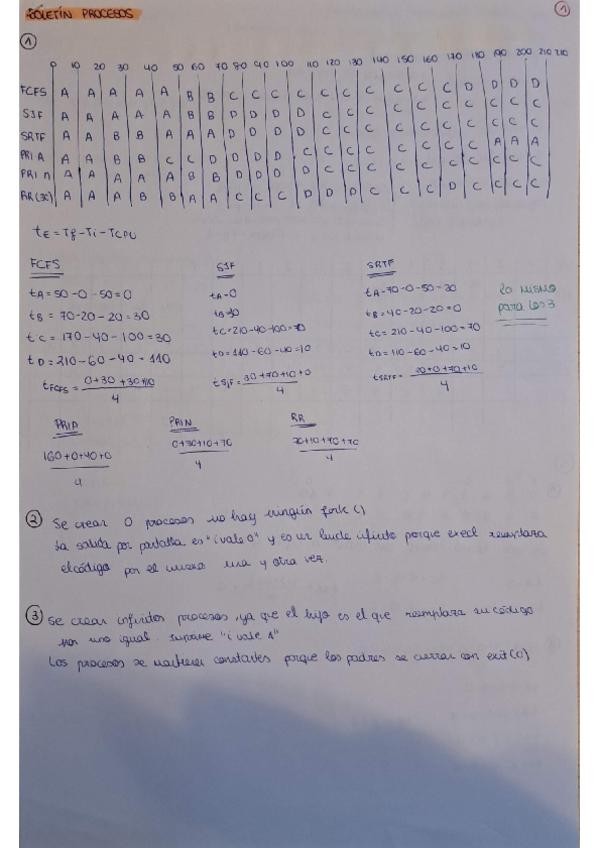 BOLETÍN PROCESOS
1
1
0 10 20 30 40 50 60 70 80 90 100 110 120 130 140 150 160 170 180 190 200 210 210
FCFS A A A A A B B C C C C C C C C C C D D D D
SJF A A A A A B B D D D D C C C C C C C C C C
SRTF A A B B A A A D D D D C C C C C C C C C C
PRI A A A B B C C D D D D C C C C C C C C A A A
PRI n A A A A A B B D D D D C C C C C C C C C C
RR(30) A A A B B A A C C C D D D C C C D C C C C
tE = Tf - Ti - TCPU
FCFS SJF SRTF
tA = 50 - 0 - 50 = 0 tA = 0 tA = 70 - 0 - 50 = 20 lo mismo
tB = 70 - 20 - 20 = 30 tB = 30 tB = 40 - 20 - 20 = 0 para los 3
tC = 170 - 40 - 100 = 30 tC = 210 - 40 - 100 = 70 tC = 210 - 40 - 100 = 70
tD = 210 - 60 - 40 = 110 tD = 110 - 60 - 40 = 10 tD = 110 - 60 - 40 = 10
tFCFS = 0+30+30+110 / 4 tSJF = 30+70+10+0 / 4 tSRTF = 20+0+70+10 / 4
PRIA PRIN RR
160+0+40+0 / 4 0+30+10+70 / 4 20+10+70+70 / 4
2 Se crean 0 procesos no hay ningún fork()
La salida por pantalla es "i vale 0" y es un bucle infinito porque execl reemplaza
el código por el mismo una y otra vez.
3 Se crean infinitos procesos, ya que el hijo es el que reemplaza su código
por uno igual. Imprime "i vale 1"
Los procesos se mantienen constantes porque los padres se cierran con exit(0)